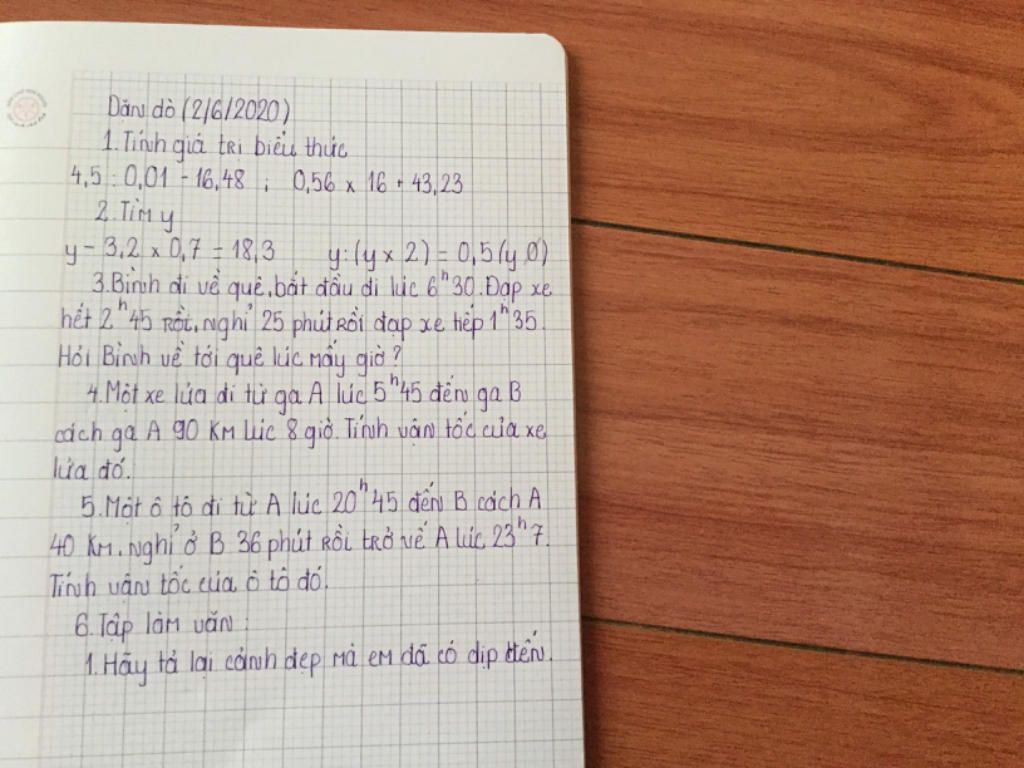 Dặn dò (2/6/2020)
1. Tính giá trị biểu thức
4,5 : 0,01 - 16,48 ; 0,56 x 16 + 43,23
2. Tìm y
y - 3,2 x 0,7 = 18,3 y : (y x 2) = 0,5 (y 0)
3. Bình đi về quê, bắt đầu đi lúc 6h30. Đạp xe
hết 2h45 rồi, nghỉ 25 phút rồi đạp xe tiếp 1h35.
Hỏi Bình về tới quê lúc mấy giờ?
4. Một xe lửa đi từ ga A lúc 5h45 đến ga B
cách ga A 90 km lúc 8 giờ. Tính vận tốc của xe
lửa đó.
5. Một ô tô đi từ A lúc 20h45 đến B cách A
40 km. Nghỉ ở B 36 phút rồi trở về A lúc 23h7.
Tính vận tốc của ô tô đó.
6. Tập làm văn:
1. Hãy tả lại cảnh đẹp mà em đã có dịp đến.